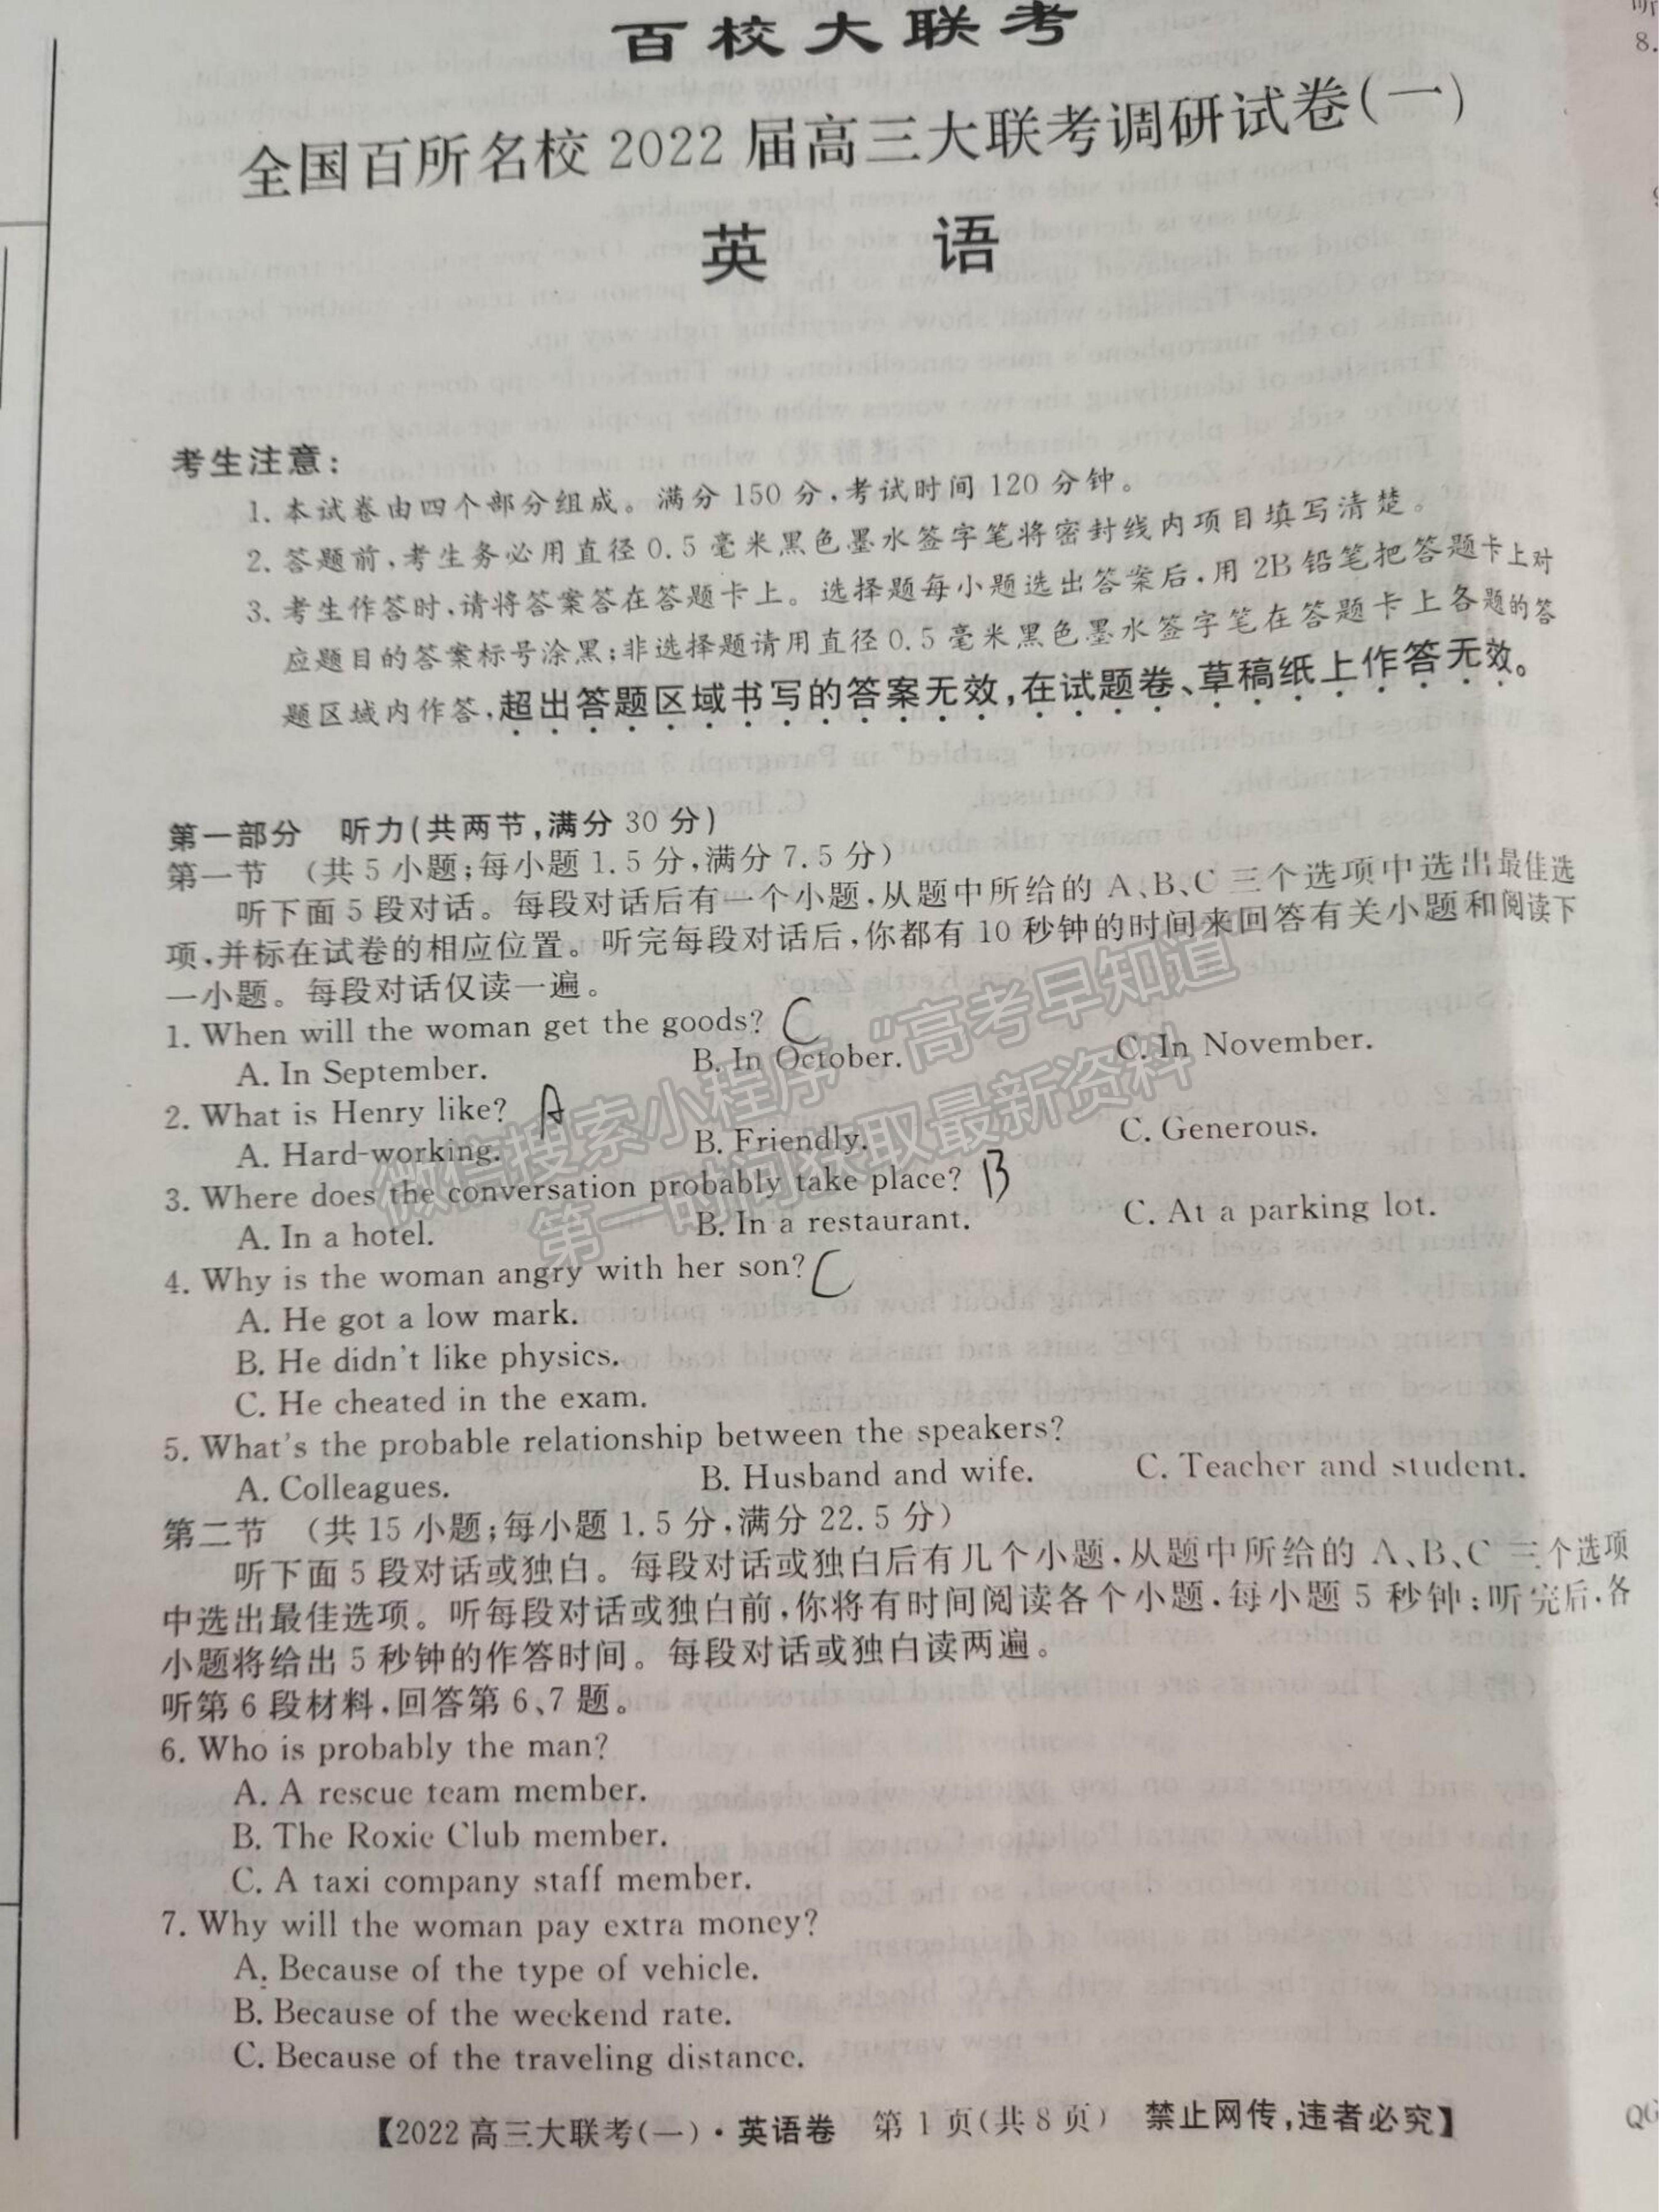 百校大联考
全国百所名校2022届高三大联考调研试卷(一)
英 语
考生注意:
1. 本试卷由四个部分组成。满分150分,考试时间120分钟。
2. 答题前,考生务必用直径0.5毫米黑色墨水签字笔将密封线内项目填写清楚。
3. 考生作答时,请将答案答在答题卡上。选择题每小题选出答案后,用2B铅笔把答题卡上对
应题目的答案标号涂黑;非选择题请用直径0.5毫米黑色墨水签字笔在答题卡上各题的答
题区域内作答,超出答题区域书写的答案无效,在试题卷、草稿纸上作答无效。
第一部分 听力(共两节,满分30分)
第一节 (共5小题;每小题1.5分,满分7.5分)
听下面5段对话。每段对话后有一个小题,从题中所给的A、B、C三个选项中选出最佳选
项,并标在试卷的相应位置。听完每段对话后,你都有10秒钟的时间来回答有关小题和阅读下
一小题。每段对话仅读一遍。
1. When will the woman get the goods? C
A. In September. B. In October. C. In November.
2. What is Henry like? A
A. Hard-working. B. Friendly. C. Generous.
3. Where does the conversation probably take place? B
A. In a hotel. B. In a restaurant. C. At a parking lot.
4. Why is the woman angry with her son? C
A. He got a low mark.
B. He didn't like physics.
C. He cheated in the exam.
5. What's the probable relationship between the speakers?
A. Colleagues. B. Husband and wife. C. Teacher and student.
第二节 (共15小题;每小题1.5分,满分22.5分)
听下面5段对话或独白。每段对话或独白后有几个小题,从题中所给的A、B、C三个选项
中选出最佳选项。听每段对话或独白前,你将有时间阅读各个小题,每小题5秒钟;听完后,各
小题将给出5秒钟的作答时间。每段对话或独白读两遍。
听第6段材料,回答第6、7题。
6. Who is probably the man?
A. A rescue team member.
B. The Roxie Club member.
C. A taxi company staff member.
7. Why will the woman pay extra money?
A. Because of the type of vehicle.
B. Because of the weekend rate.
C. Because of the traveling distance.
【2022高三大联考(一)·英语卷 第1页(共8页) 禁止网传,违者必究】
微信搜索小程序“高考早知道”
第一时间获取最新资料
8.